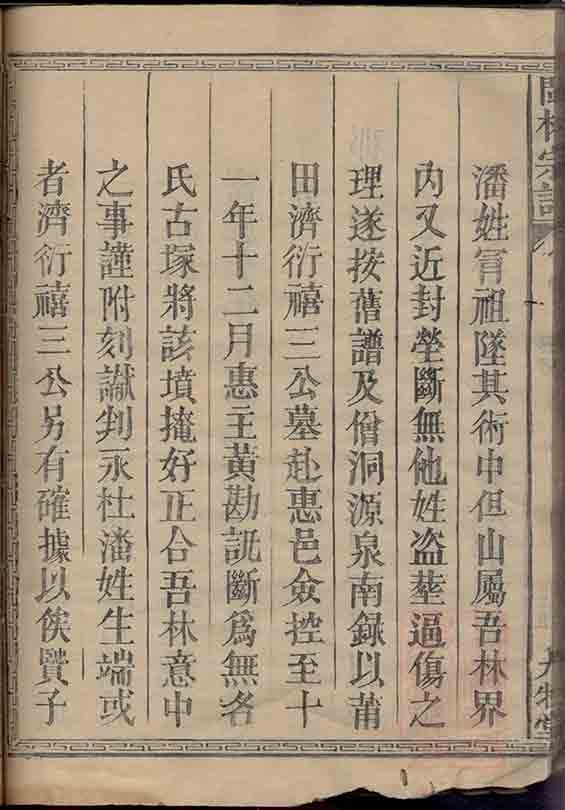 潘姓冐祖墜其術中但山屬吾林界
内又近封塋斷無他姓盗塟逼傷之
理遂按舊譜及僧洞源泉南録以莆
田濟衍禧三公墓赴惠邑僉控至十
一年十二月惠主黄勘訊斷爲無名
氏古塚將該墳掩好正合吾林意中
之事謹附刻讞判永杜潘姓生端或
者濟衍禧三公另有確據以俟賢子
林宗譜